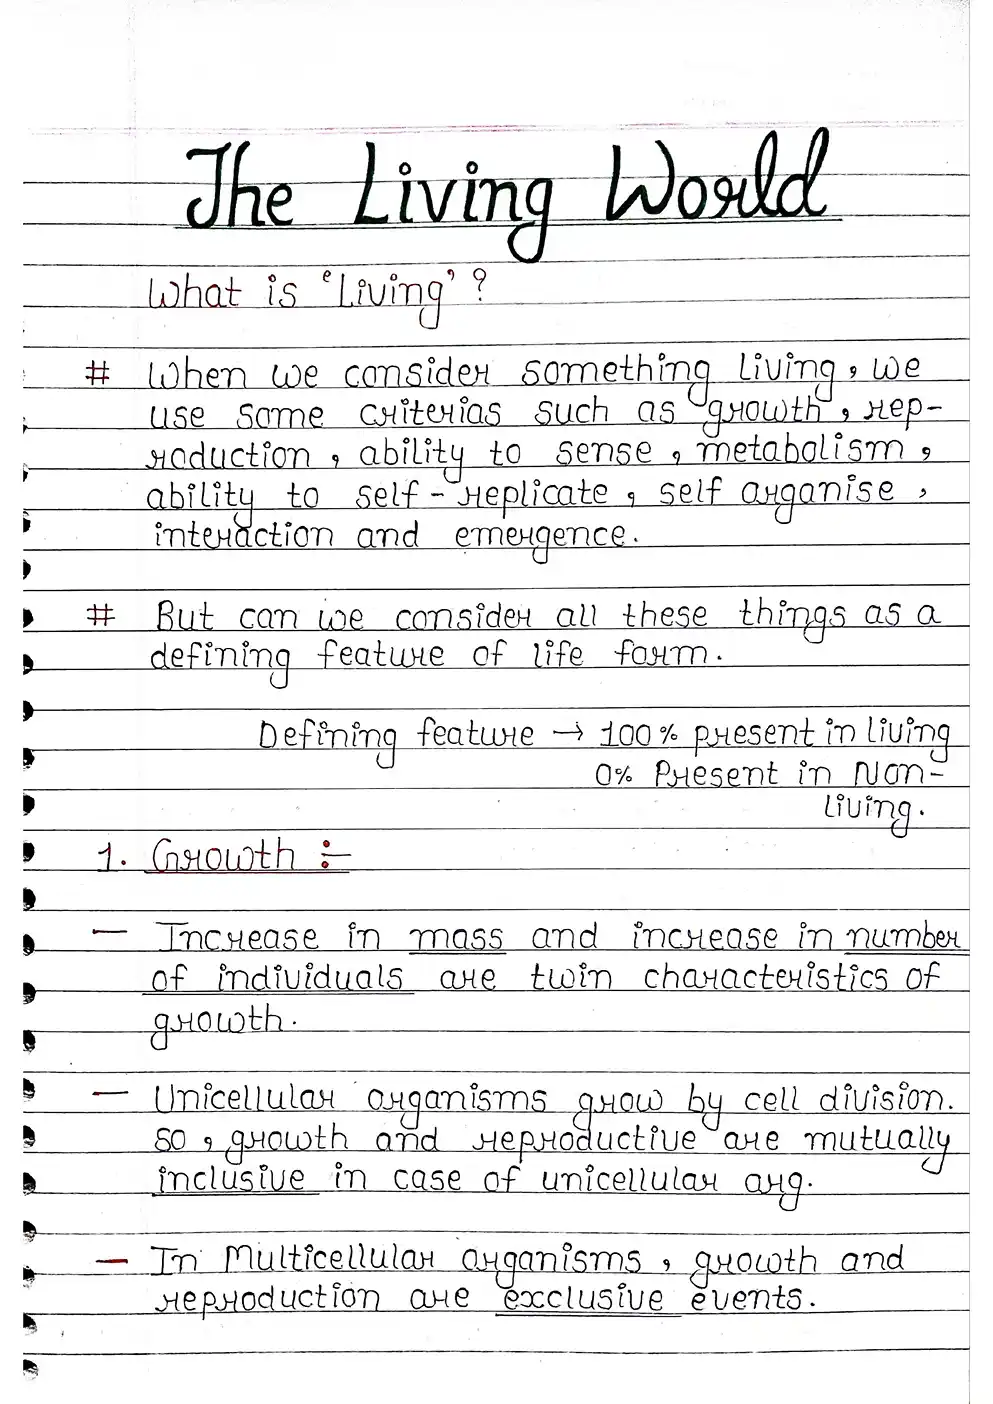 The Living World
What is 'Living' ?
# When we consider something living, we
use some criterias such as growth, rep-
roduction, ability to sense, metabolism,
ability to self-replicate, self organise,
interaction and emergence.
# But can we consider all these things as a
defining feature of life form.
Defining feature → 100% present in living
0% Present in Non-
living.
1. Growth :-
— Increase in mass and increase in number
of individuals are twin characteristics of
growth.
— Unicellular organisms grow by cell division.
so, growth and reproductive are mutually
inclusive in case of unicellular org.
— In Multicellular organisms, growth and
reproduction are exclusive events.